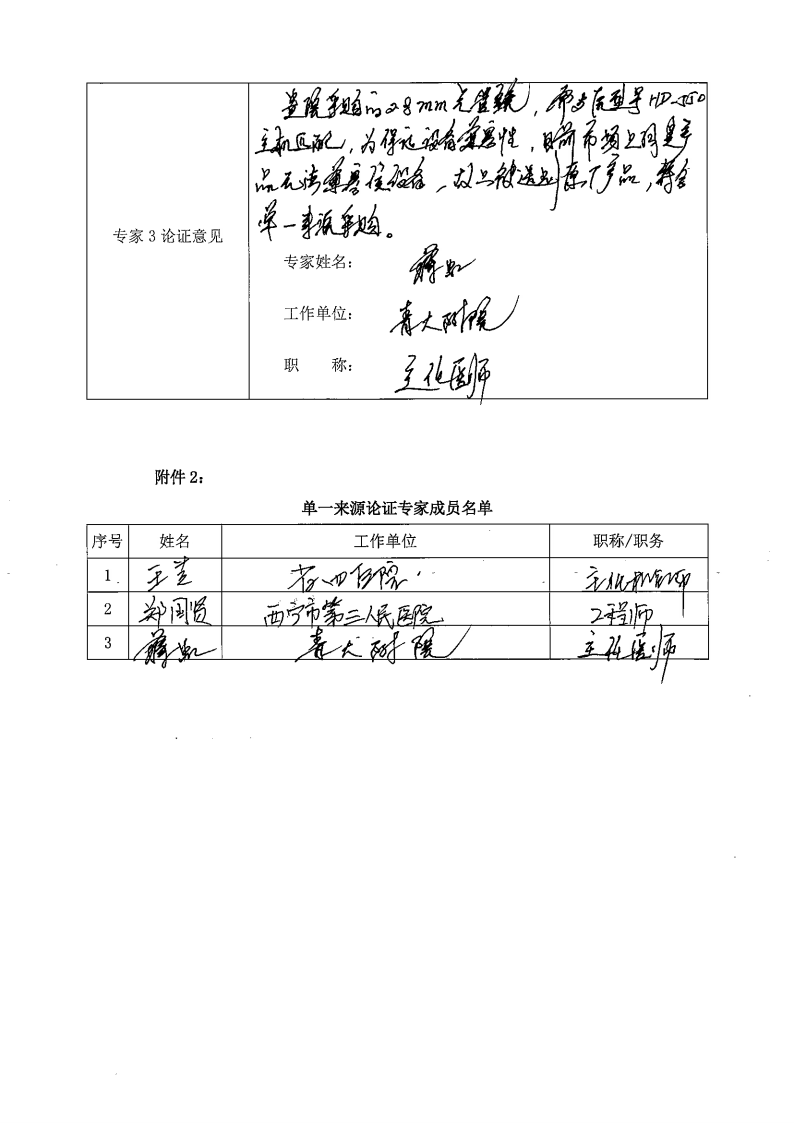 专家 3 论证意见
贵院采购的2.8mm光管镜，需与原型号HD-550
主机匹配，为保证设备兼容性，目前市场上同类产
品无法兼容该设备，故只能选原厂产品，符合
单一来源采购。
专家姓名：
工作单位： 青大附院
职 称： 主任医师
附件 2：
单一来源论证专家成员名单
序号 姓名 工作单位 职称/职务
1 王 省四医院
2 郑国贤 西宁市第三人民医院 工程师
3 青大附院 主任医师